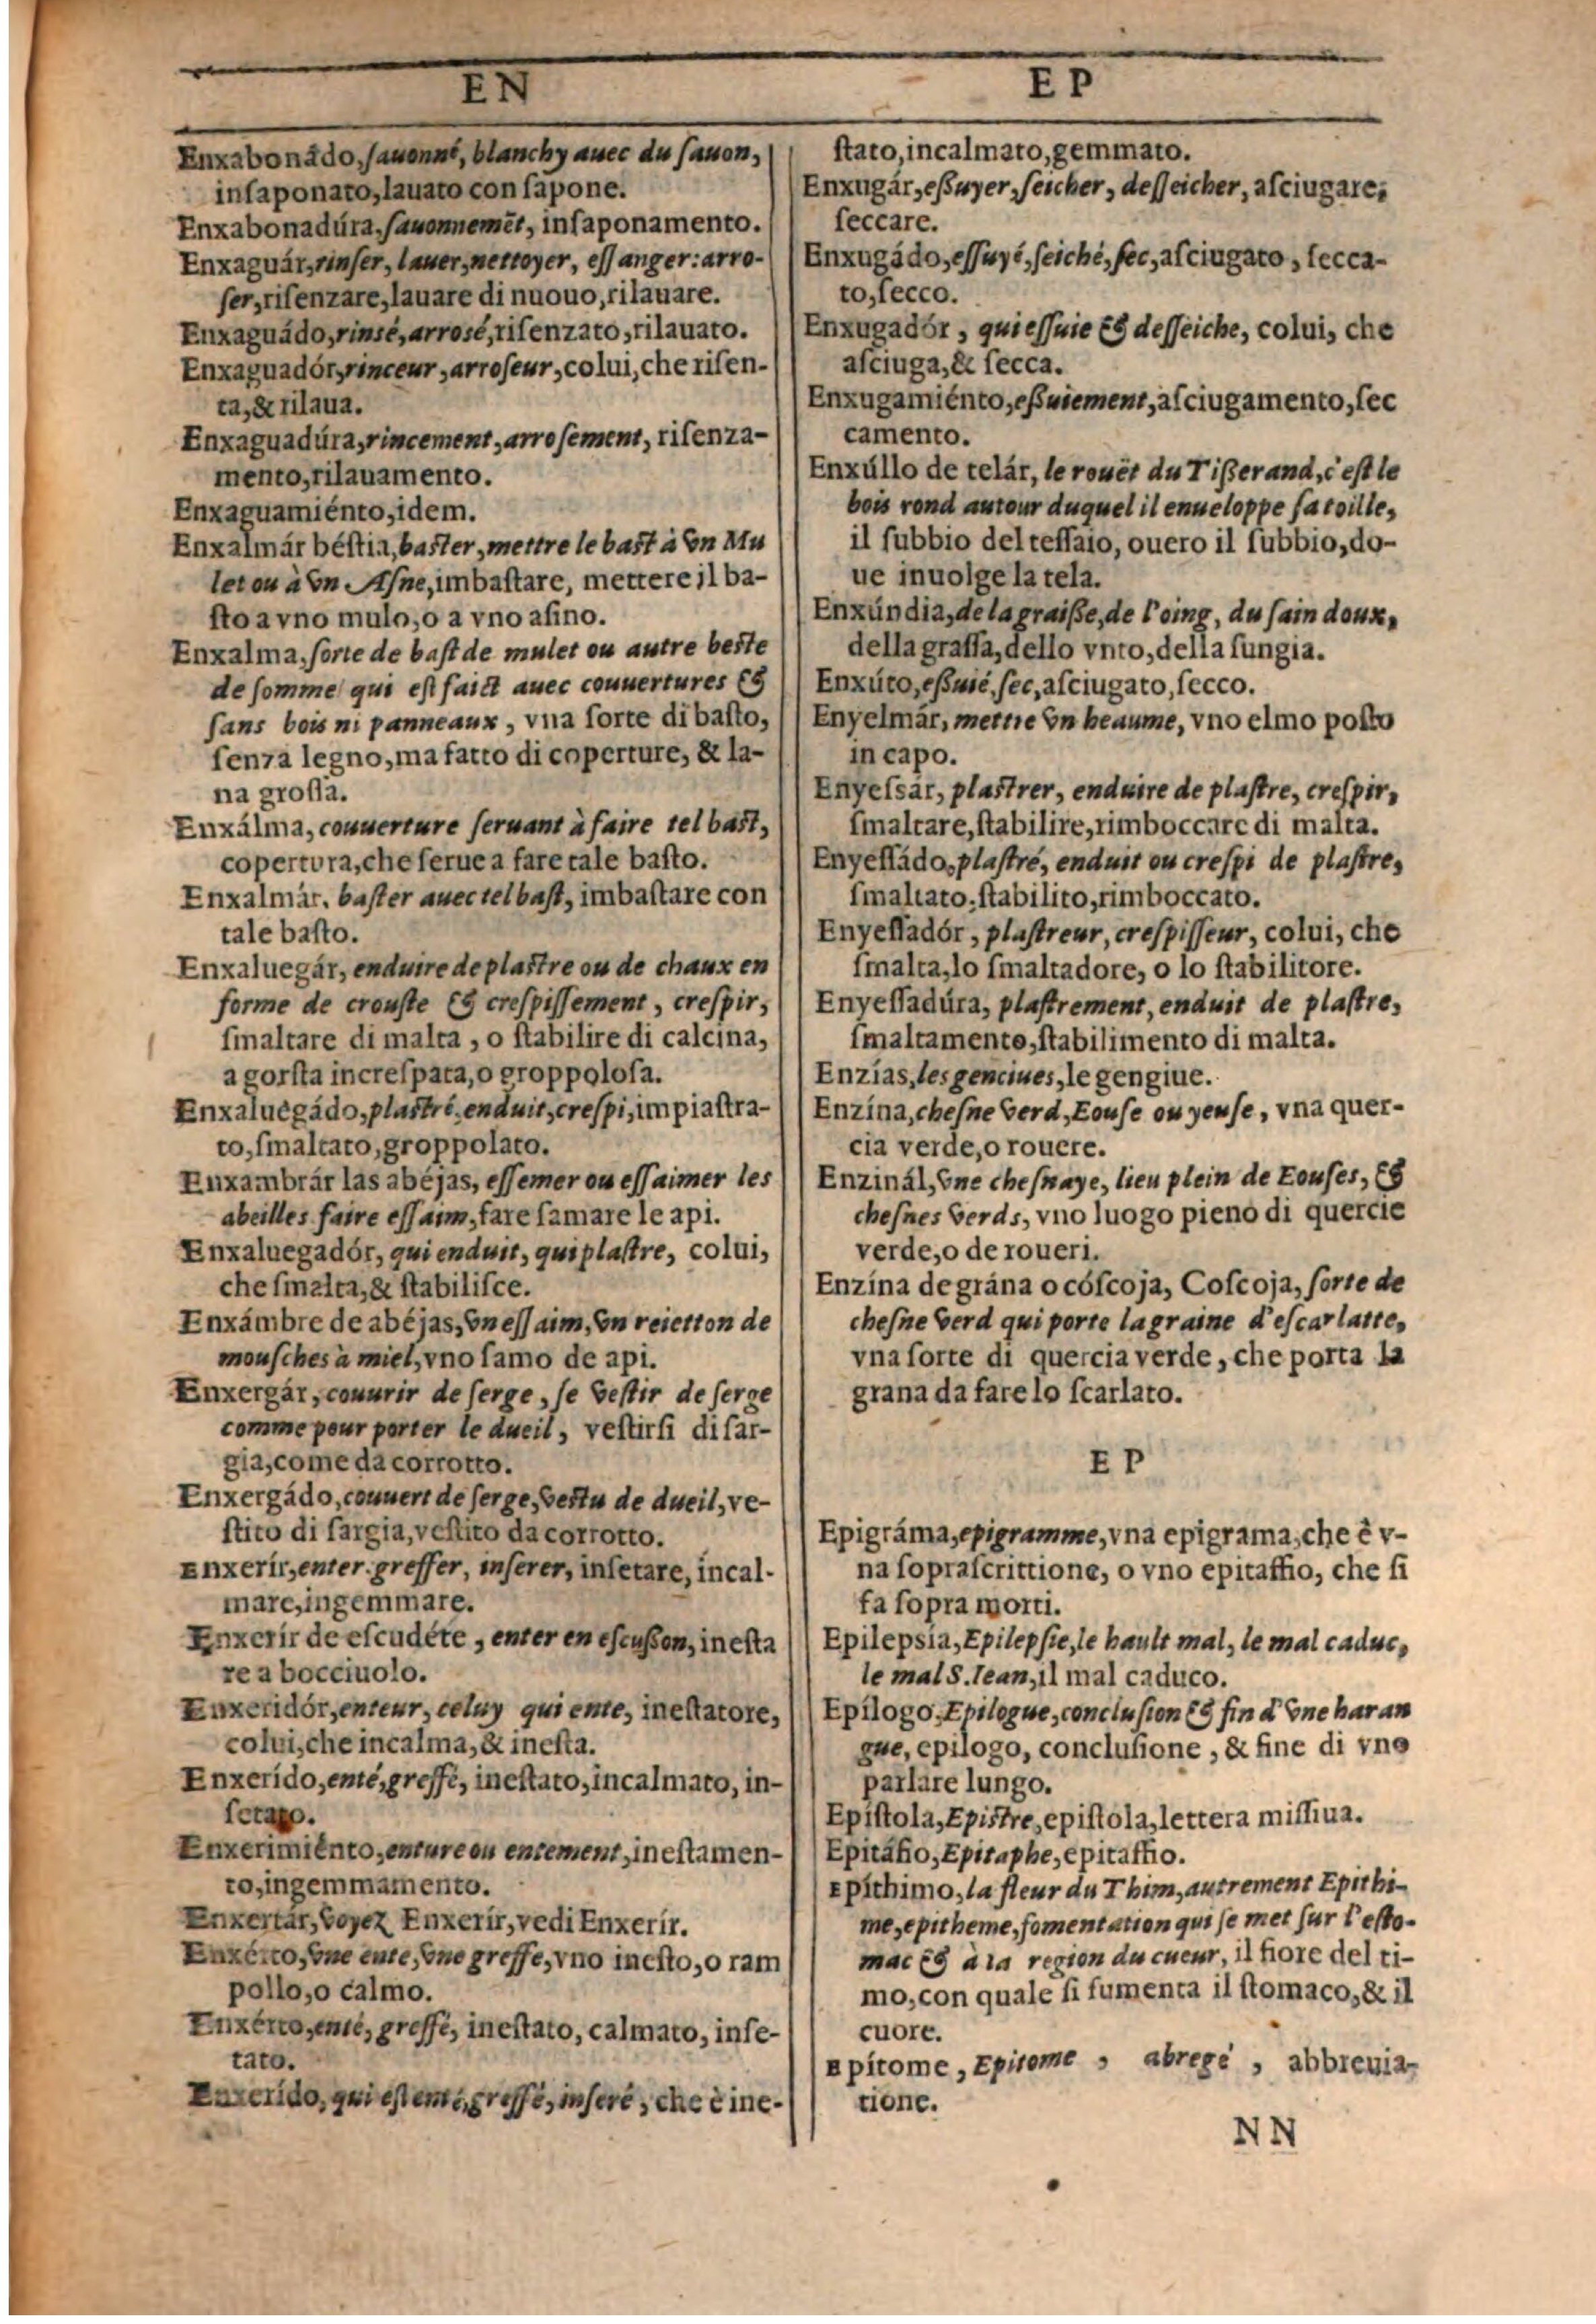 EN
EP
Enxabonádo, ſauonné, blanchy auec du ſauon,
inſaponato, lauato con ſapone.
Enxabonadúra, ſauonnemẽt, inſaponamento.
Enxaguár, rinſer, lauer, nettoyer, eſſanger: arro-
ſer, riſenzare, lauare di nuouo, rilauare.
Enxaguádo, rinsé, arrosé, riſenzato, rilauato.
Enxaguadór, rinceur, arroſeur, colui, che riſen-
ta, & rilaua.
Enxaguadúra, rincement, arroſement, riſenza-
mento, rilauamento.
Enxaguamiénto, idem.
Enxalmár béſtia, baſter, mettre le baſt à vn Mu
let ou à vn Aſne, imbaſtare, mettere il ba-
ſto a vno mulo, o a vno aſino.
Enxalma, ſorte de baſt de mulet ou autre beſte
de ſomme qui eſt faict auec couuertures &
ſans bois ni panneaux, vna ſorte di baſto,
ſenza legno, ma fatto di coperture, & la-
na groſſa.
Enxálma, couuerture ſeruant à faire tel baſt,
copertura, che ſerue a fare tale baſto.
Enxalmár, baſter auec tel baſt, imbaſtare con
tale baſto.
Enxaluegár, enduire de plaſtre ou de chaux en
forme de crouſte & creſpiſſement, creſpir,
ſmaltare di malta, o ſtabilire di calcina,
a gorſta increſpata, o groppoloſa.
Enxaluegádo, plaſtré, enduit, creſpi, impiaſtra-
to, ſmaltato, groppolato.
Enxambrár las abéjas, eſſemer ou eſſaimer les
abeilles faire eſſaim, fare ſamare le api.
Enxaluegadór, qui enduit, qui plaſtre, colui,
che ſmalta, & ſtabiliſce.
Enxámbre de abéjas, vn eſſaim, vn reietton de
mouſches à miel, vno ſamo de api.
Enxergár, couurir de ſerge, ſe veſtir de ſerge
comme pour porter le dueil, veſtirſi di ſar-
gia, come da corrotto.
Enxergádo, couuert de ſerge, veſtu de dueil, ve-
ſtito di ſargia, veſtito da corrotto.
Enxerír, enter. greffer, inſerer, inſetare, incal-
mare, ingemmare.
Enxerír de eſcudéte, enter en eſcuſſon, ineſta
re a bocciuolo.
Enxeridór, enteur, celuy qui ente, ineſtatore,
colui, che incalma, & ineſta.
Enxerído, enté, greffé, ineſtato, incalmato, in-
ſetato.
Enxerimiénto, enture ou entement, ineſtamen-
to, ingemmamento.
Enxertár, voyez Enxerír, vedi Enxerír.
Enxérto, vne ente, vne greffe, vno ineſto, o ram
pollo, o calmo.
Enxérto, enté, greffé, ineſtato, calmato, inſe-
tato.
Enxerído, qui eſt enté, greffé, inſeré, che è ine-
ſtato, incalmato, gemmato.
Enxugár, eſſuyer, ſeicher, deſſeicher, aſciugare,
ſeccare.
Enxugádo, eſſuyé, ſeiché, ſec, aſciugato, ſecca-
to, ſecco.
Enxugadór, qui eſſuie & deſſeiche, colui, che
aſciuga, & ſecca.
Enxugamiénto, eſſuiement, aſciugamento, ſec
camento.
Enxúllo de telár, le rouët du Tiſſerand, c'eſt le
bois rond autour duquel il enueloppe ſa toille,
il ſubbio del teſſaio, ouero il ſubbio, do-
ue inuolge la tela.
Enxúndia, de la graiſſe, de l'oing, du ſain doux,
della graſſa, dello vnto, della ſungia.
Enxúto, eſſuié, ſec, aſciugato, ſecco.
Enyelmár, mettre vn heaume, vno elmo poſto
in capo.
Enyeſsár, plaſtrer, enduire de plaſtre, creſpir,
ſmaltare, ſtabilire, rimboccare di malta.
Enyeſſádo, plaſtré, enduit ou creſpi de plaſtre,
ſmaltato, ſtabilito, rimboccato.
Enyeſſadór, plaſtreur, creſpiſſeur, colui, che
ſmalta, lo ſmaltadore, o lo ſtabilitore.
Enyeſſadúra, plaſtrement, enduit de plaſtre,
ſmaltamento, ſtabilimento di malta.
Enzías, les genciues, le gengiue.
Enzína, cheſne verd, Eouſe ou yeuſe, vna quer-
cia verde, o rouere.
Enzinál, vne cheſnaye, lieu plein de Eouſes, &
cheſnes verds, vno luogo pieno di quercie
verde, o de roueri.
Enzína de grána o cóſcoja, Coſcoja, ſorte de
cheſne verd qui porte la graine d'eſcarlatte,
vna ſorte di quercia verde, che porta la
grana da fare lo ſcarlato.
EP
Epigráma, epigramme, vna epigrama, che è v-
na ſopraſcrittione, o vno epitaffio, che ſi
fa ſopra morti.
Epilepsía, Epilepſie, le hault mal, le mal caduc,
le mal S. Iean, il mal caduco.
Epílogo, Epilogue, concluſion & fin d'vne haran
gue, epilogo, concluſione, & fine di vno
parlare lungo.
Epíſtola, Epiſtre, epiſtola, lettera miſſiua.
Epitáfio, Epitaphe, epitaffio.
Epíthimo, la fleur du Thim, autrement Epithi-
me, epitheme, fomentation qui ſe met ſur l'eſto-
mac & à la region du cueur, il fiore del ti-
mo, con quale ſi fumenta il ſtomaco, & il
cuore.
Epítome, Epitome, abregé, abbreuia-
tione.
NN